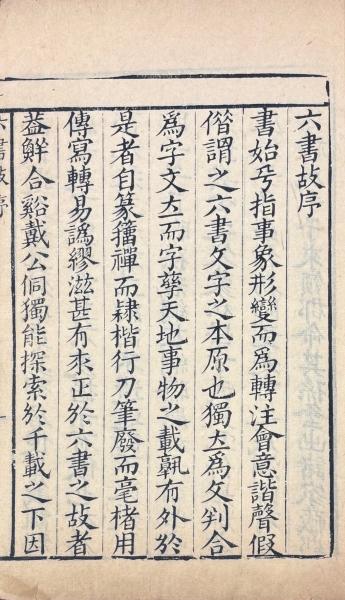 六書故序
書始於指事象形變而爲轉注會意諧聲假
借謂之六書文字之本原也獨立爲文判合
爲字文立而字孳天地事物之載孰有外於
是者自篆籒禪而隸楷行刀筆廢而毫楮用
傳寫轉易譌繆滋甚有求正於六書之故者
葢鮮合谿戴公侗獨能探索於千載之下因
六書故序